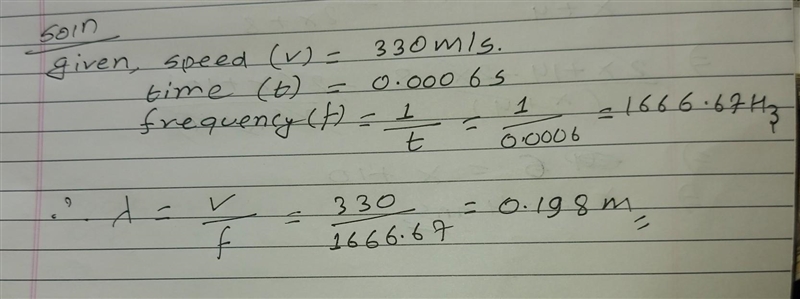 soln
given, speed (v) = 330 m/s.
time (t) = 0.0006 s
frequency (f) = 1/t = 1/0.0006 = 1666.67 Hz
∴ λ = v/f = 330/1666.67 = 0.198 m